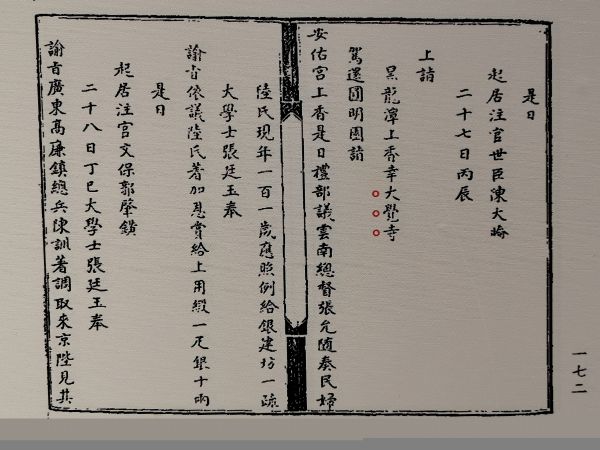 是日
起居注官世臣陳大㫤
二十七日丙辰
上請
黑龍潭上香幸大覺寺
駕還圓明園請
安佑宮上香是日禮部議雲南總督張允隨奏民婦
陸氏現年一百一歲應照例給銀建坊一疏
大學士張廷玉奉
諭旨依議陸氏著加恩賞給上用緞一疋銀十兩
是日
起居注官文保郭肇鐄
二十八日丁巳大學士張廷玉奉
諭旨廣東高廉鎮總兵陳訓著調取來京陛見其
一七二